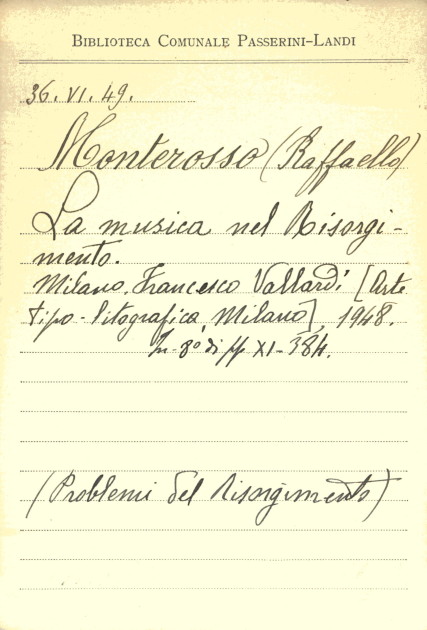 BIBLIOTECA COMUNALE PASSERINI-LANDI
36. VI. 49.
Monterosso (Raffaello)
La musica nel Risorgi-
mento.
Milano, Francesco Vallardi [Arte
tipo-litografica, Milano], 1948.
In-8° di pp XI-384.
(Problemi del Risorgimento)